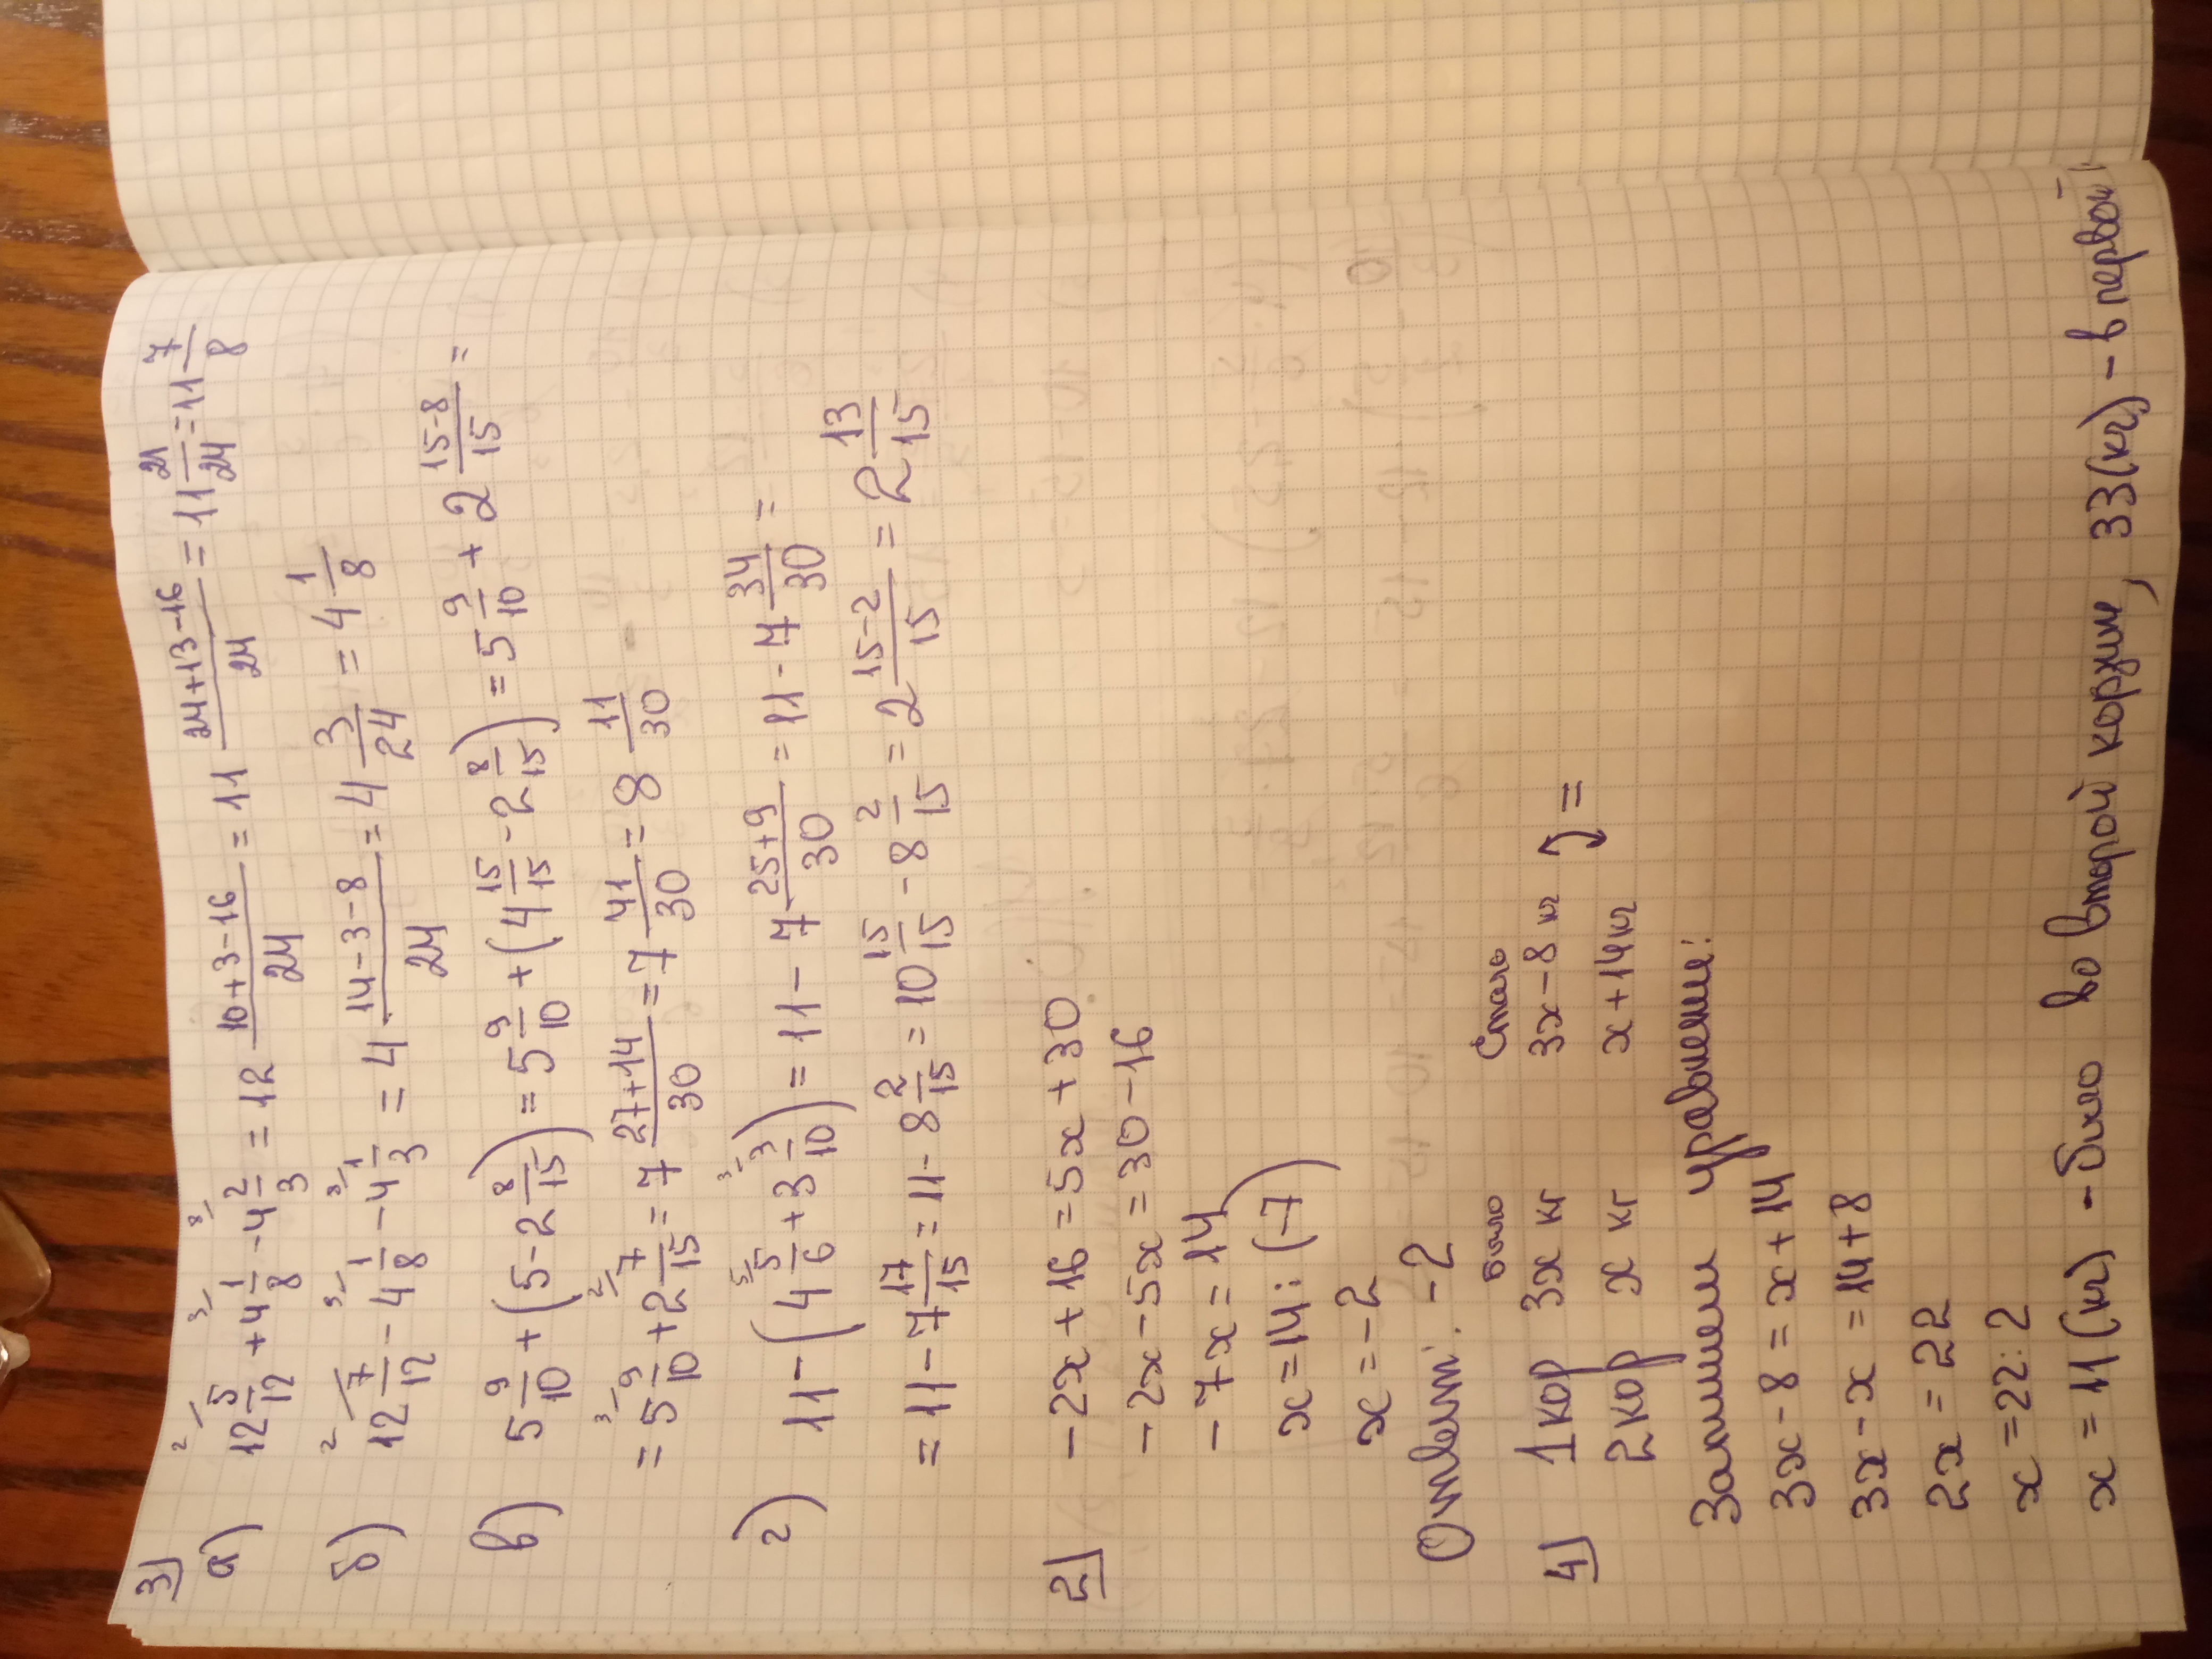 3)
а) 12 5/12 + 4 1/8 - 4 2/3 = 12 (10+3-16)/24 = 11 (24+13-16)/24 = 11 21/24 = 11 7/8
б) 12 7/12 - 4 1/8 - 4 1/3 = 4 (14-3-8)/24 = 4 3/24 = 4 1/8
в) 5 9/10 + (5 - 2 8/15) = 5 9/10 + (4 15/15 - 2 8/15) = 5 9/10 + 2 (15-8)/15 =
= 5 9/10 + 2 7/15 = 7 (27+14)/30 = 7 41/30 = 8 11/30
г) 11 - (4 5/6 + 3 3/10) = 11 - 7 (25+9)/30 = 11 - 7 34/30 =
= 11 - 7 17/15 = 11 - 8 2/15 = 10 15/15 - 8 2/15 = 2 (15-2)/15 = 2 13/15
2) -2x + 16 = 5x + 30
-2x - 5x = 30 - 16
-7x = 14
x = 14 : (-7)
x = -2
Ответ: -2
было Стало
4) 1 кор 3x кг 3x - 8 кг =
2 кор x кг x + 14 кг
Запишем уравнение:
3x - 8 = x + 14
3x - x = 14 + 8
2x = 22
x = 22 : 2
x = 11 (кг) - было во второй корзине, 33 (кг) - в первой